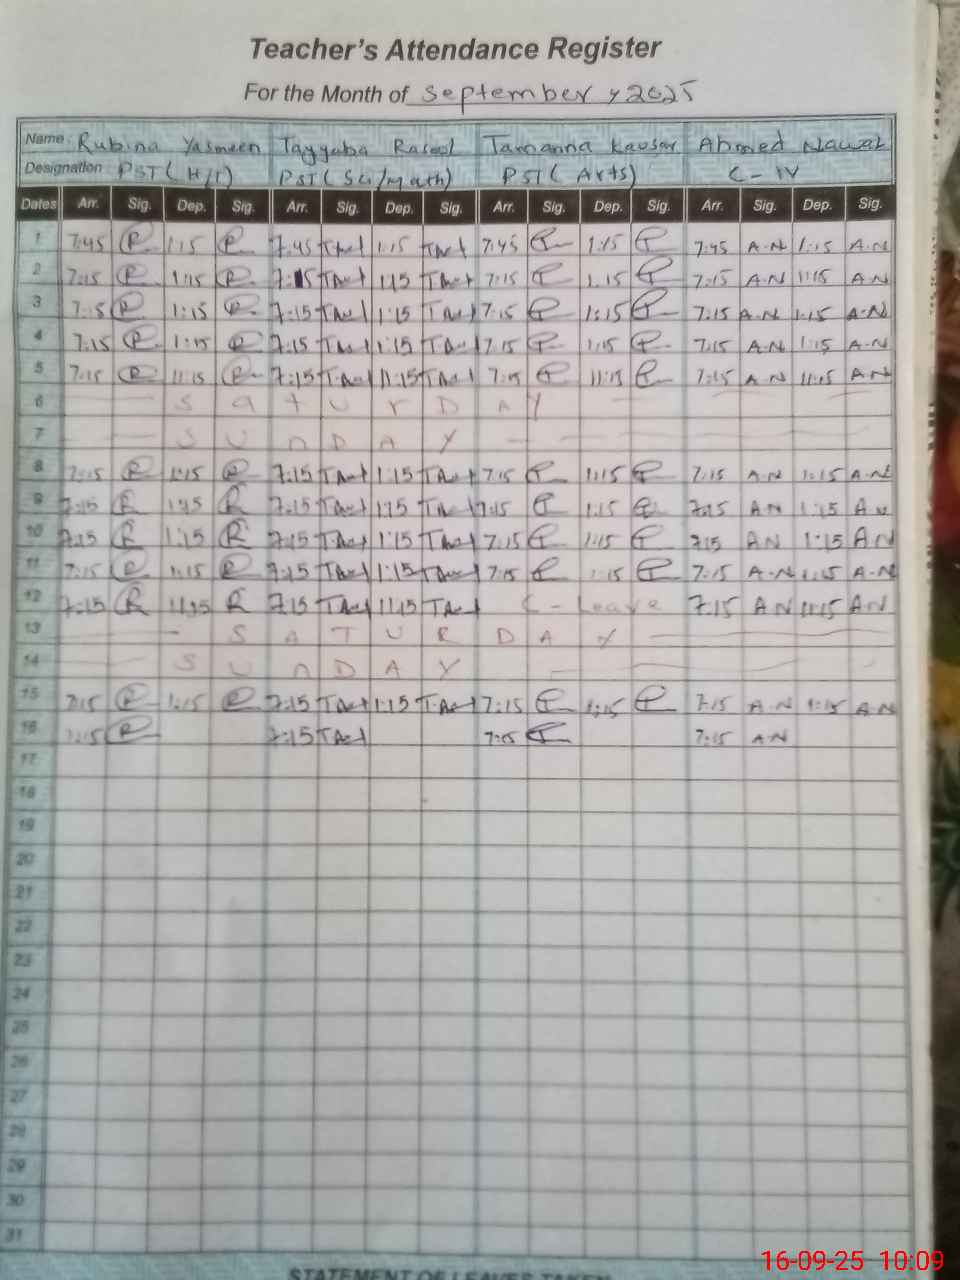 Teacher's Attendance Register
For the Month of September, 2025
Name: Rubina Yasmeen Tayyaba Rasool Tamanna Kausar Ahmed Nawaz
Designation: PST(H/T) PST(Sci/Math) PST(Arts) C-IV
Dates Arr. Sig. Dep. Sig. Arr. Sig. Dep. Sig. Arr. Sig. Dep. Sig. Arr. Sig. Dep. Sig.
1 7:45 R 1:15 R 7:45 1:15 7:45 1:15 7:45 A.N 1:15 A.N
2 7:15 R 1:15 R 7:15 1:15 7:15 1:15 7:15 A.N 1:15 A.N
3 7:15 R 1:15 R 7:15 1:15 7:15 1:15 7:15 A.N 1:15 A.N
4 7:15 R 1:15 R 7:15 1:15 7:15 1:15 7:15 A.N 1:15 A.N
5 7:15 R 11:15 R 7:15 11:15 7:15 11:15 7:15 A.N 11:15 A.N
6 SaturDAY
7 SUnDAY
8 7:15 R 1:15 R 7:15 1:15 7:15 1:15 7:15 AN 1:15 A.N
9 7:15 R 1:15 R 7:15 1:15 7:15 1:15 7:15 AN 1:15 AN
10 7:15 R 1:15 R 7:15 1:15 7:15 1:15 7:15 AN 1:15 AN
11 7:15 R 1:15 R 7:15 1:15 7:15 1:15 7:15 A.N 1:15 A.N
12 7:15 R 11:15 R 7:15 11:15 C-Leave 7:15 AN 11:15 AN
13 SATURDAY
14 SUnDAY
15 7:15 R 1:15 R 7:15 1:15 7:15 1:15 7:15 A.N 1:15 A.N
16 7:15 R 7:15 7:15 7:15 AN
17
18
19
20
21
22
23
24
25
26
27
28
29
30
31
STATEMENT OF LEAVES TAKEN
16-09-25 10:09